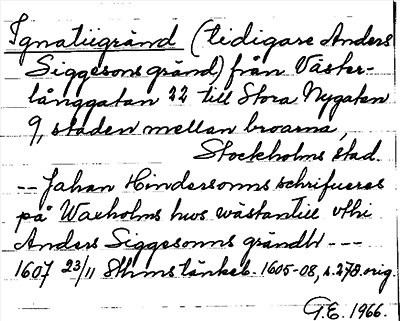 Ignatiigränd (tidigare Anders
Siggesons gränd) från Väster-
långgatan 22 till Stora Nygatan
9, staden mellan broarna,
Stockholms stad.
-- Johan Hindersonns schrifueres
på Waxholms hws wästantill vthi
Anders Siggesonns gråndh ---
1607 23/11 Sthms tänkeb. 1605-08, s. 278. orig.
G.E. 1966.